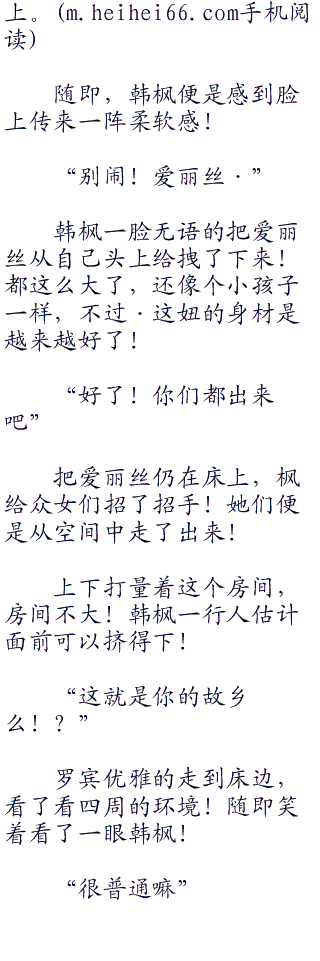 上。(m.heihei66.com手机阅
读)
随即，韩枫便是感到脸
上传来一阵柔软感！
“别闹！爱丽丝·”
韩枫一脸无语的把爱丽
丝从自己头上给拽了下来！
都这么大了，还像个小孩子
一样，不过·这妞的身材是
越来越好了！
“好了！你们都出来
吧”
把爱丽丝仍在床上，枫
给众女们招了招手！她们便
是从空间中走了出来！
上下打量着这个房间，
房间不大！韩枫一行人估计
面前可以挤得下！
“这就是你的故乡
么！？”
罗宾优雅的走到床边，
看了看四周的环境！随即笑
着看了一眼韩枫！
“很普通嘛”